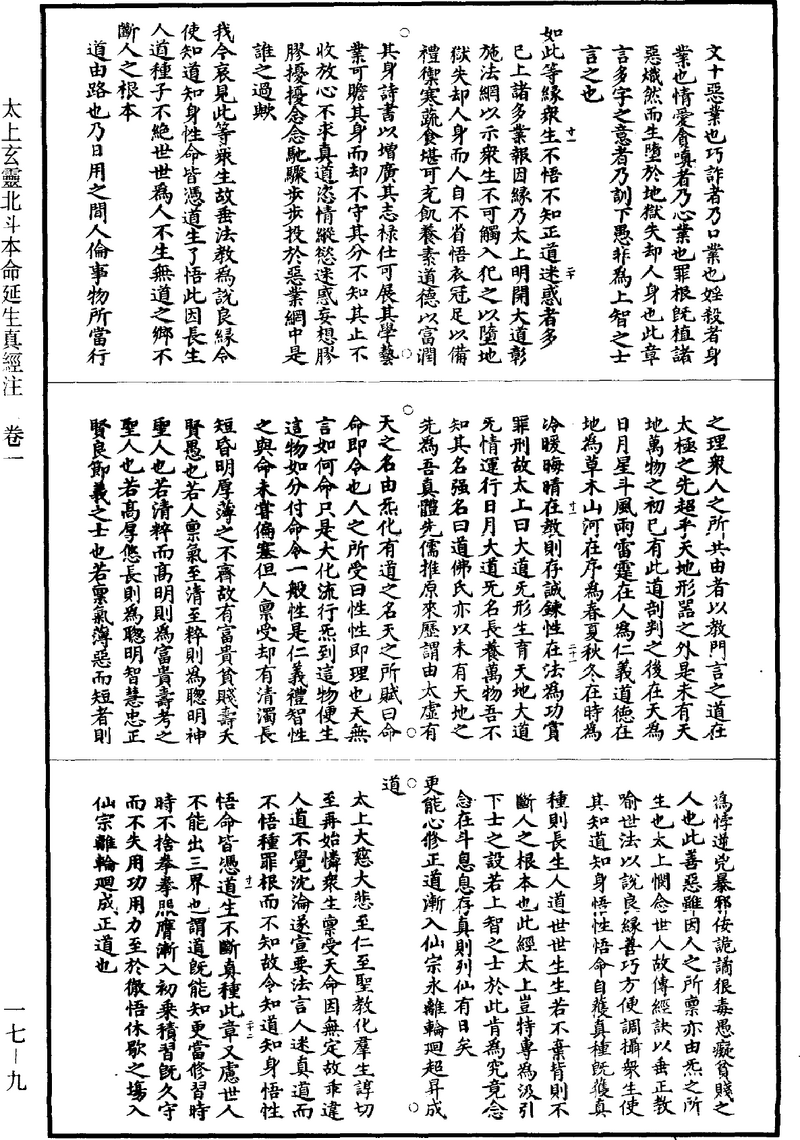 文十惡業也巧詐者乃口業也婬殺者身
業也情愛貪嗔者乃心業也罪根旣植諸
惡熾然而生墮於地獄失却人身也此章
言多字之意者乃訓下愚非為上智之士
言之也
如此等緣衆生不悟不知正道迷惑者多
已上諸多業報因緣乃太上明開大道彰
施法網以示衆生不可觸入犯之以墮地
獄失却人身而人自不省悟衣冠足以備
禮禦寒蔬食堪可充飢養素道德以富潤
其身詩書以增廣其志禄仕可展其學藝
業可贍其身而却不守其分不知其止不
收放心不求真道恣情縱慾迷惑妄想膠
膠擾擾念念馳驟步步投於惡業網中是
誰之過歟
我今哀見此等衆生故垂法教為說良緣令
使知道知身性命皆憑道生了悟此因長生
人道種子不絶世世爲人不生無道之鄉不
斷人之根本
道由路也乃日用之間人倫事物所當行
之理衆人之所共由者以教門言之道在
太極之先超乎天地形器之外是未有天
地萬物之初已有此道剖判之後在天為
日月星斗風雨雷霆在人爲仁義道德在
地為草木山河在序為春夏秋冬在時為
冷暖晦晴在教則存誠鍊性在法為功賞
罪刑故太上曰大道无形生育天地大道
无情運行日月大道无名長養萬物吾不
知其名强名曰道佛氏亦以未有天地之
先為吾真體先儒推原來歷謂由太虛有
天之名由炁化有道之名天之所賦曰命
命即令也人之所受曰性性即理也天無
言如何命只是大化流行炁到這物便生
這物如分付命令一般性是仁義禮智性
之與命未嘗偏塞但人禀受却有清濁長
短昏明厚薄之不齊故有富貴貧賤壽夭
賢愚也若人禀氣至清至粹則為聰明神
聖人也若清粹而高明則為富貴壽考之
聖人也若高厚悠長則為聰明智慧忠正
賢良節義之士也若禀氣薄惡而短者則
爲悖逆兇暴邪佞詭譎狠毒愚癡貧賤之
人也此善惡雖因人之所禀亦由炁之所
生也太上憫念世人故傳經訣以垂正教
喻世法以說良緣善巧方便調攝衆生使
其知道知身悟性悟命自獲真種旣獲真
種則長生人道世世生生若不棄背則不
斷人之根本也此經太上豈特專為汲引
下士之設若上智之士於此肯為究竟念
念在斗息息存真則列仙有日矣
更能心修正道漸入仙宗永離輪迴超昇成
道
太上大慈大悲至仁至聖教化羣生諄切
至再始憐衆生禀受天命因無定故乖違
人道不覺沈淪遂宣要法言人迷真道而
不悟種罪根而不知故令知道知身悟性
悟命皆憑道生不斷真種此章又慮世人
不能出三界也謂道旣能知更當修習時
時不捨拳拳服膺漸入初乗積習旣久守
而不失用功用力至於徹悟休歇之塲入
仙宗離輪迴成正道也
太上玄靈北斗本命延生真經注 卷一
一七—九